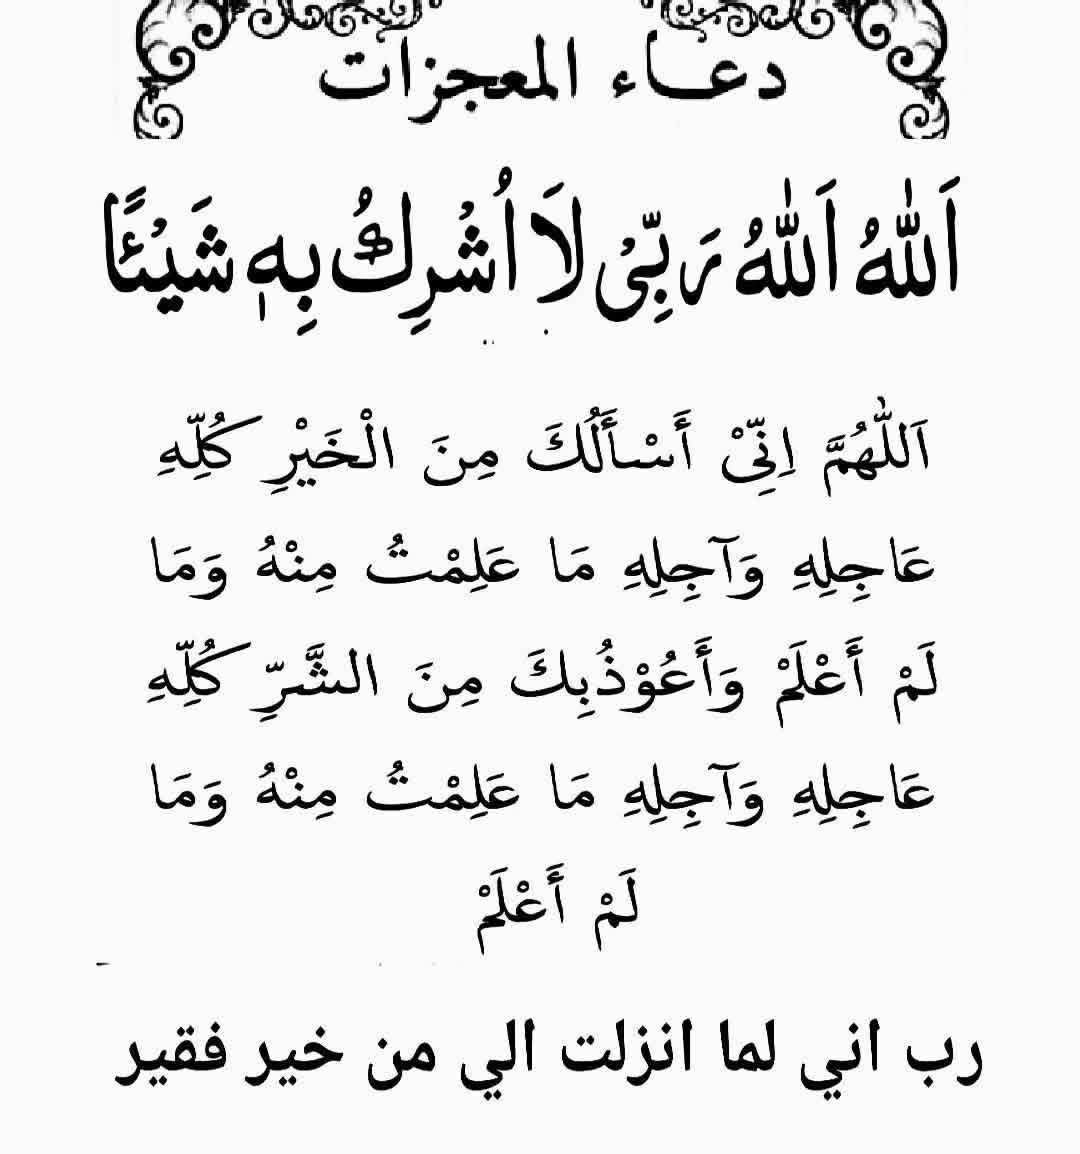 دعاء المعجزات
اَللّٰهُ اَللّٰهُ رَبِّیْ لَا اُشْرِكُ بِهٖ شَیْئًا
اَللّٰهُمَّ اِنِّیْ أَسْأَلُكَ مِنَ الْخَيْرِ كُلِّهِ
عَاجِلِهِ وَآجِلِهِ مَا عَلِمْتُ مِنْهُ وَمَا
لَمْ أَعْلَمْ وَأَعُوْذُبِكَ مِنَ الشَّرِّ كُلِّهِ
عَاجِلِهِ وَآجِلِهِ مَا عَلِمْتُ مِنْهُ وَمَا
لَمْ أَعْلَمْ
رب اني لما انزلت الي من خير فقير